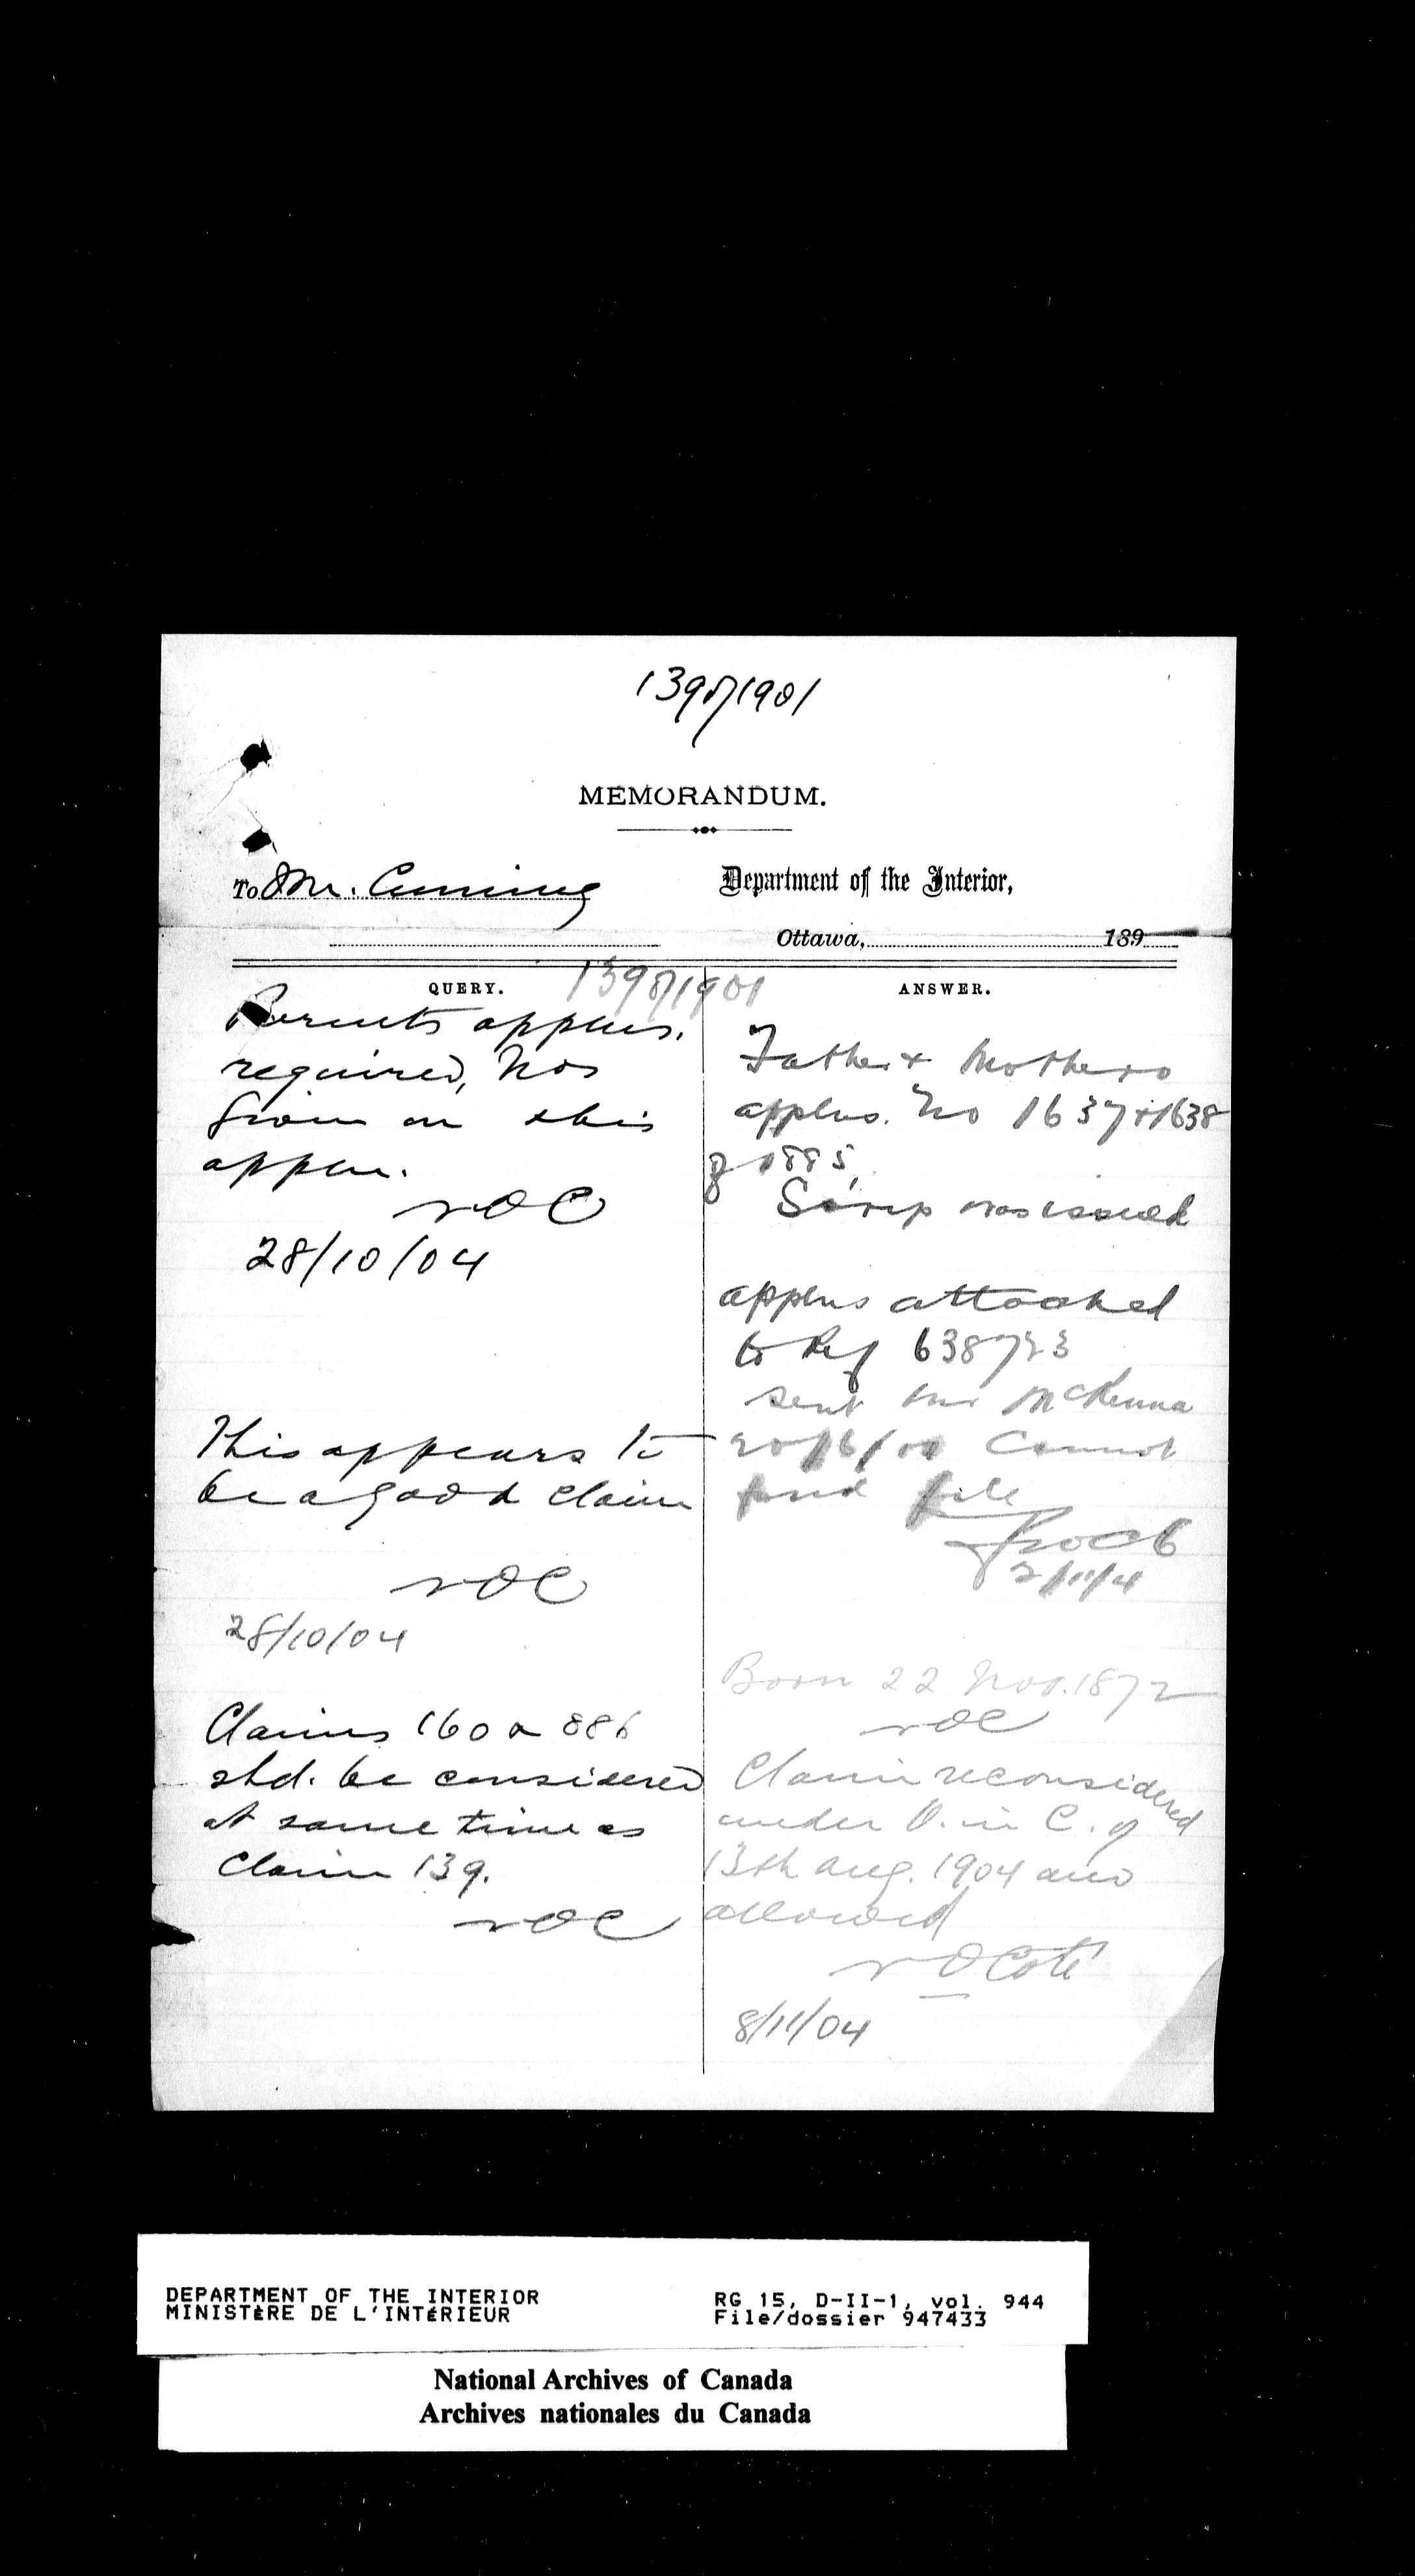 139 of 1901
MEMORANDUM.
To Mr. Cuming
Department of the Interior,
Ottawa, 189
QUERY.
139 of 1901
Parents applns.
required, Nos
given on this
appln.
NOC
28/10/04
This appears to
be a good claim
NOC
28/10/04
Claims 160 & 886
shd. be considered
at same time as
Claim 139.
NOC
ANSWER.
Father & Mothers
applns. No 1637 & 1638
of 1885
Scrip was issued
applns attached
to Ref 638723
sent Mr McKenna
Cannot
find file
2/11/4
Born 22 Nov. 1872
NOC
Claim reconsidered
under O. in C. of
13th Aug. 1904 and
allowed
NO Coté
8/11/04
DEPARTMENT OF THE INTERIOR
MINISTÈRE DE L'INTÉRIEUR
RG 15, D-II-1, vol. 944
File/dossier 947433
National Archives of Canada
Archives nationales du Canada